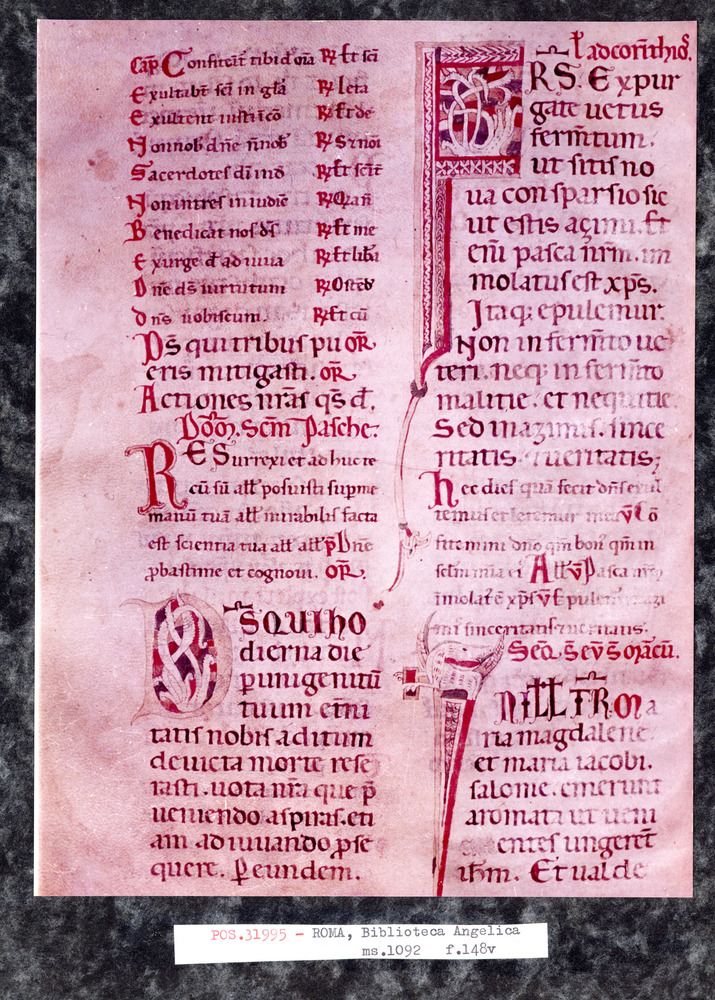 Cap̄. Confiteāt̄ tibi dn̄e oīa ℟ Et sc̄i
Exultabt̄ sc̄i in gl̄a ℟ Leta
Exultent iusti ī cō ℟ Et de
Non nob̄ dn̄e n̄ nob̄ ℟ S; noī
Sacerdotes dī ind̄ ℟ Et sc̄it̄
Non intres in iudiē ℟ Q̄ian̄
Benedicat nos d̄s ℟ Et me
Exurge d̄ adiuua ℟ Et libā
Dn̄e d̄s uirtutum ℟ Ostēd̄
Dn̄s uobiscum. ℟ Et cū
D̄s qui tribus pu OR̄
eris mitigasti. OR̄
Actiones nr̄as q̄s d̄.
Dom̄. Sc̄m Pasche:
RESurrexi et adhuc te
cū sū all̄ posuisti sup me
manū tuā all̄ mirabilis facta
est scientia tua all̄ all̄ p̄ Dn̄e
ꝓbasti me et cognoui. OR̄.
D̄S QUI HO
dierna die
ꝑ unigenitū
tuum et̄ni
tatis nobis aditum
deuicta morte rese
rasti. uota nr̄a que p̄
ueniendo aspiras. eti
am adiuuando ꝓse
quere. Ꝑ eundem.
ł ad corīnthios̄.
F̄RS̄. Expur
gate uetus
ferm̄tum.
ut sitis no
ua consparsio sic
ut estis açimi. Et
eni pasca nr̄m. im
molatus est xp̄s.
Itaq; epulemur.
Non in ferm̄to ue
teri. neq; in ferm̄to
malitie. et nequitie.
Sed in azimis. since
ritatis. ueritatis;
Hec dies quā fecit dn̄s exul
temus et letemur in ea ℣ Cō
fitemini dn̄o qm̄ bon' qm̄ in
sclm̄ mīa ei' All̄ ℣ Pasca nr̄m
īmolat' ē xp̄s ℣ Epulem̄ azi
mi sinceritatis ueritatis.
Seq̄. S. eu S. oracū.
IN ILL̄ T̄R̄ Ma
ria magdalene.
et maria iacobi.
salome. emerunt
aromata ut ueni
entes ungerēt
ih̄m. Et ualde
POS.31995 - ROMA, Biblioteca Angelica
ms.1092 f.148v